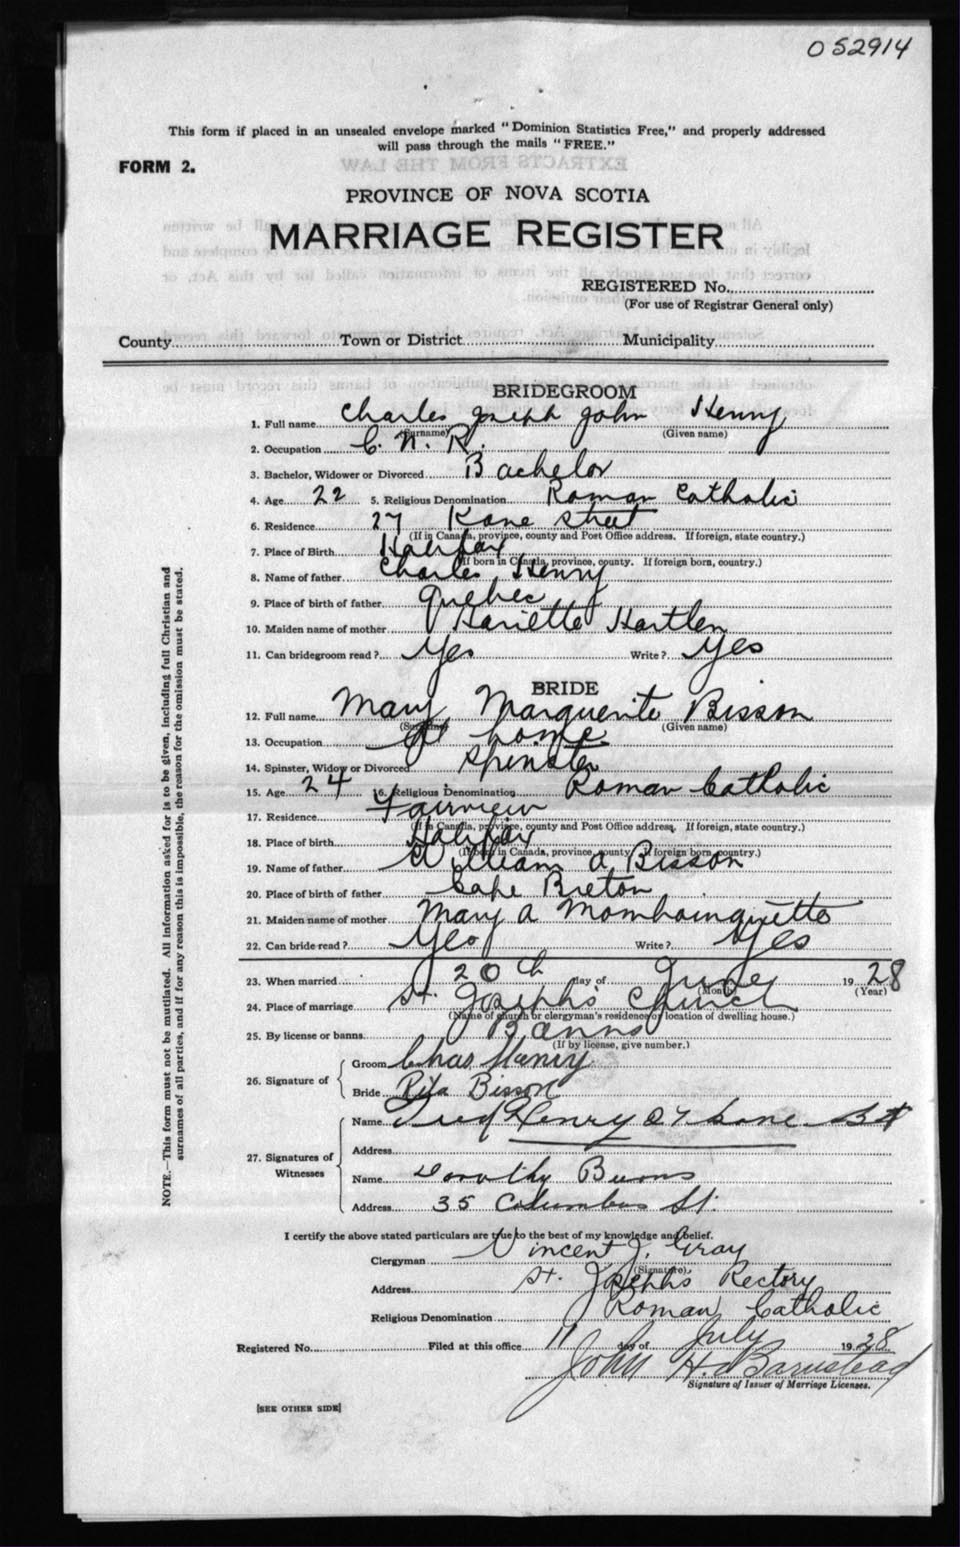 052914
This form if placed in an unsealed envelope marked "Dominion Statistics Free," and properly addressed
will pass through the mails "FREE."
FORM 2.
PROVINCE OF NOVA SCOTIA
MARRIAGE REGISTER
REGISTERED No.
(For use of Registrar General only)
County Town or District Municipality
BRIDEGROOM
1. Full name Charles Joseph John Henry
(Surname) (Given name)
2. Occupation C. N. R.
3. Bachelor, Widower or Divorced Bachelor
4. Age 22 5. Religious Denomination Roman Catholic
6. Residence 27 Kane Street
(If in Canada, province, county and Post Office address. If foreign, state country.)
7. Place of Birth Halifax
(If born in Canada, province, county. If foreign born, country.)
8. Name of father Charles Henry
9. Place of birth of father Quebec
10. Maiden name of mother Hariette Hartlen
11. Can bridegroom read? Yes Write? Yes
BRIDE
12. Full name Mary Marguerite Bisson
(Surname) (Given name)
13. Occupation at home
14. Spinster, Widow or Divorced Spinster
15. Age 24 16. Religious Denomination Roman Catholic
17. Residence Fairview
(If in Canada, province, county and Post Office address. If foreign, state country.)
18. Place of birth Halifax
(If born in Canada, province, county. If foreign born, country.)
19. Name of father William A. Bisson
20. Place of birth of father Cape Breton
21. Maiden name of mother Mary A
22. Can bride read? Yes Write? Yes
23. When married 20th day of June 1928
(Month) (Year)
24. Place of marriage St. Josephs Church
(Name of church or clergyman's residence or location of dwelling house.)
25. By license or banns Banns
(If by license, give number.)
26. Signature of Groom Chas Henry
Bride Rita Bisson
27. Signatures of Witnesses Name Fred Henry 27 Kane St
Address
Name Dorothy Burns
Address 35 Columbus St.
I certify the above stated particulars are true to the best of my knowledge and belief.
Clergyman Vincent J. Gray
(Signature)
Address St. Josephs Rectory
Religious Denomination Roman Catholic
Registered No. Filed at this office 11 day of July 1928
John H. Barnstead
Signature of Issuer of Marriage Licenses.
[SEE OTHER SIDE]
NOTE.—This form must not be mutilated. All information asked for is to be given, including full Christian and
surnames of all parties, and if for any reason this is impossible, the reason for the omission must be stated.